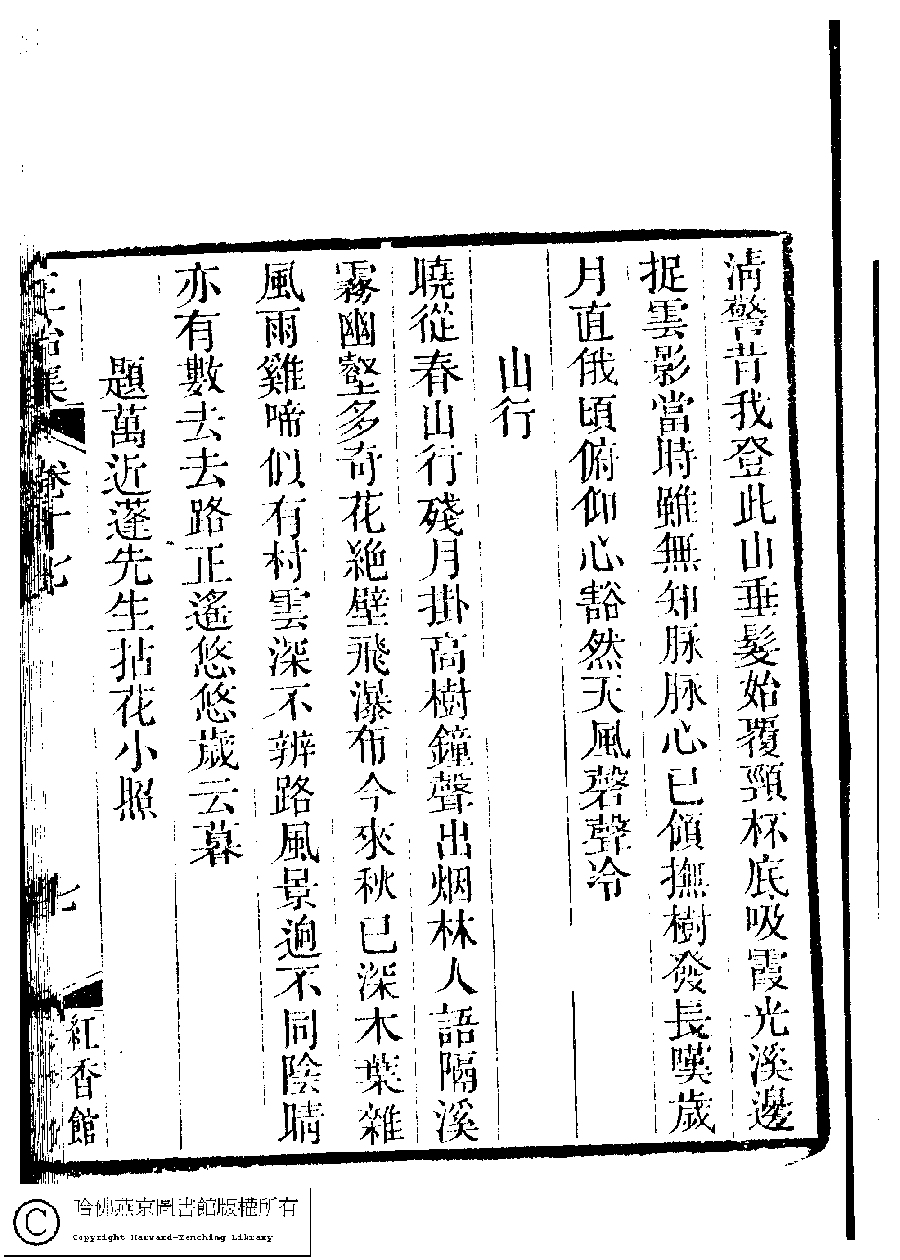 清警昔我登此山垂髮始覆頸杯底吸霞光溪邊
捉雲影當時雖無知脉脉心已傾撫樹發長嘆歲
月直俄頃俯仰心豁然天風磬聲冷
山行
曉從春山行殘月掛高樹鐘聲出烟林人語隔溪
霧幽壑多奇花絕壁飛瀑布今來秋已深木葉雜
風雨雞啼似有村雲深不辨路風景迥不同陰晴
亦有數去去路正遙悠悠歲云暮
題萬近蓬先生拈花小照
集 卷十七
七
紅香館
哈佛燕京圖書館版權所有
Copyright Harvard-Yenching Library